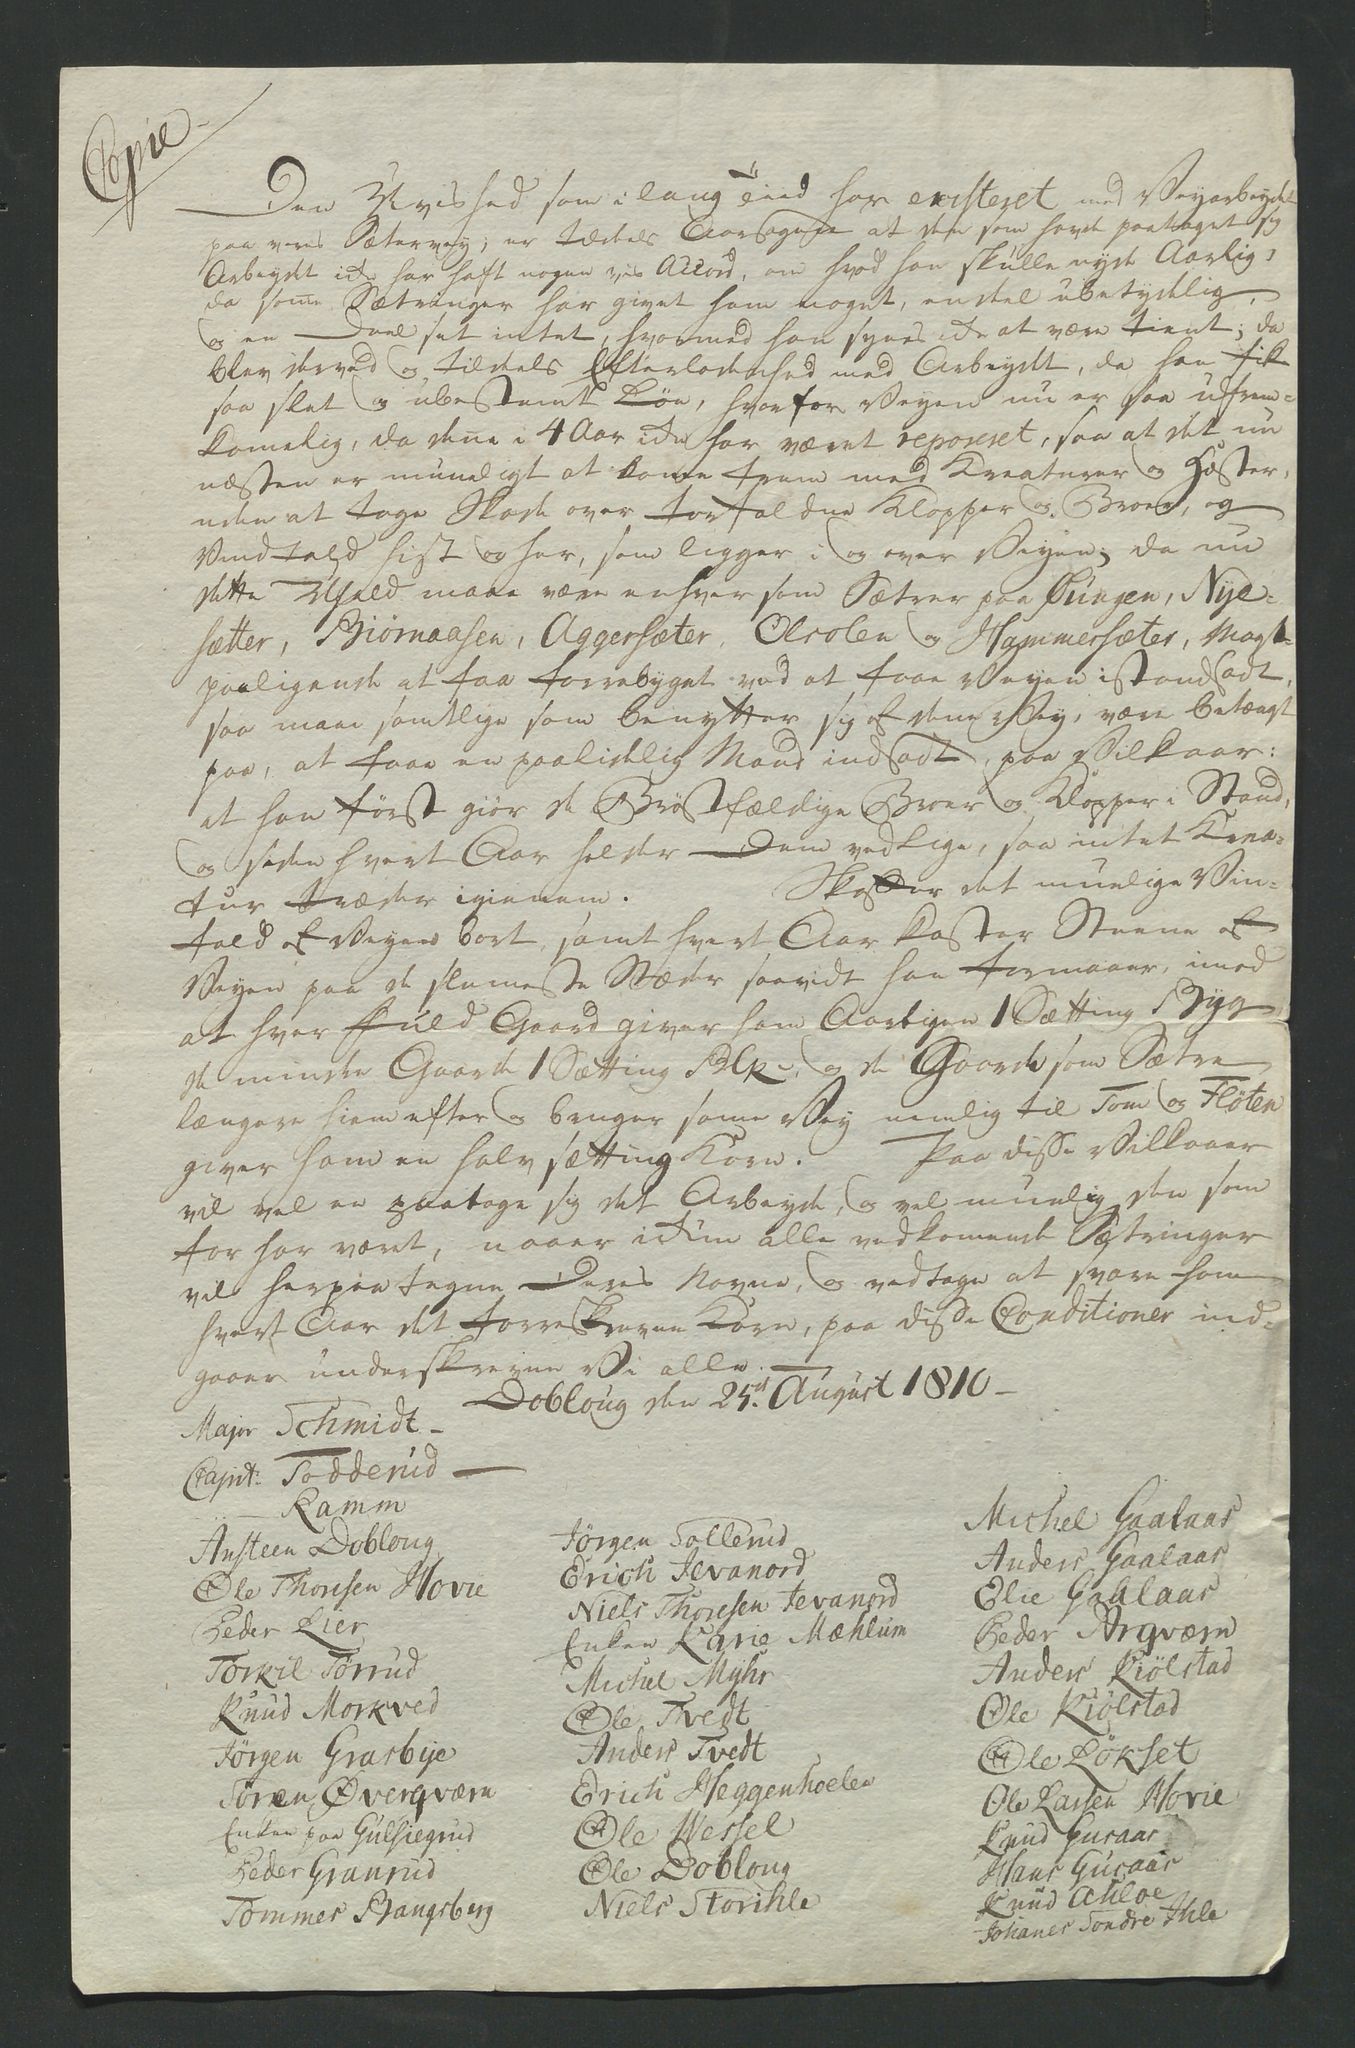 Copie
Den Uvished som i lang Tiid har existeret med Veyarbeydet
paa vores Sætervey, er tildels Aarsagen at den som havde paataget sig
Arbeydet ikke har haft nogen vis Accord, om hvad han skulle nyde Aarlig,
da some Sætringer har givet ham noget, endeel ubetydelig,
og en Deel slet intet, hvormed han synes ikke at være tient; da
blev derved og tildels Efterladenhed med Arbeydet, da han fik
saa slet og ubestemt Løn, hvorfor Veyen nu er saa ufrem=
komelig, da den̄e i 4 Aar ikke har været reparert, saa at det nu
næsten er umueligt at kome frem med Kreaturer og Hæster,
uden at tage Skade over forfaldne Klopper og Broer, og
Vindfald hist og her, som ligger i og over Veyen; da nu
dette Uheld maae være enhver som Sætrer paa Pungen, Nye=
sætter, Biørnaasen, Aggersæter, Olsolen og Hammersæter, Magt=
paaligende at faa forrebyget ved at faae Veyen istandsadt,
saa maae samtlige som benytter sig af den̄e Vey, være betængt
paa, at faae en paalidelig Mand indsadt, paa Vilkaar:
at han først giør de Brøstfældige Broer og Klopper i Stand,
og siden hvert Aar holder Dem vedlige, saa intet Krea=
tur træder igienem. Skaffer det muelige Vin=
fald af Veyen bort, samt hvert Aar kaster Steene af
Veyen paa de slemeste Stæder saavidt han formaaer, imod
at hver fuld Gaard giver ham Aarligen 1 Sætting Byg,
de mindre Gaarde 1 Sætting Blk., og de Gaarde som Sætre
længere hiemefter og bruger same Vey nemlig til Tom og Fløten
giver ham en halv sætting Korn. Paa disse Vilkaar
vil vel en paatage sig det Arbeyde, og vel muelig den som
før har været, naaer ikkun alle vedkomende Sætringer
vil herpaa tegne Deres Navne, og vedtage at svare ham
hvert Aar det forreskrevne Korn, paa disse Conditioner ind=
gaaer underskrevne Vi alle.
Dobloug den 25de August 1810
Major Schmidt
Capit: Todderud
Ramm
Ansteen Dobloug
Ole Thoresen Hovie
Peder Lier
Torkil Tørrud
Knud Morkved
Jørgen Grasbye
Søren Øvergværn
Enken paa Gulsiegrud
Peder Granrud
Tommes Bangsberg
Jørgen Sollerud
Erich Jevanord
Niels Thoresen Jevanord
Enken Karie Mæhlum
Michel Myhr
Ole Tvedt
Anders Tvedt
Erich Heggenhoelen
Ole Wessel
Ole Dobloug
Niels Storihle
Michel Gaalaas
Anders Gaalaas
Elie Gaalaas
Peder Arqværn
Anders Kiølstad
Ole Kiølstad
Ole Løkset
Ole Larsen Hovie
Knud Guraas
Hans Guraas
Knud Ahloe
Johanes Sondre Ihle